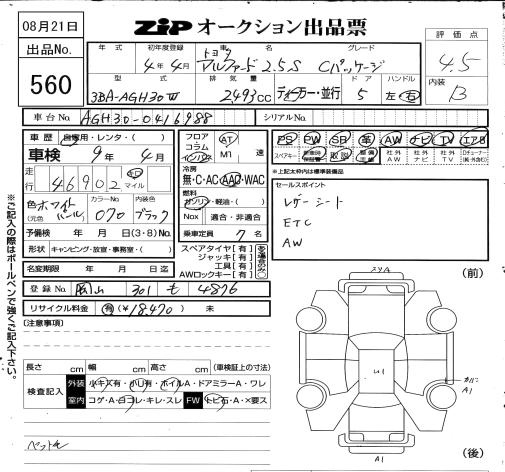 08月21日
ZiP オークション出品票
出品No.
560
年式 初年度登録 車名 グレード
4年4月 トヨタ アルファード 2.5.S Cパッケージ
型式 排気量 ドア ハンドル
3BA-AGH30W 2,493cc ディーラー・並行 5 左・右
評価点
4.5
内装
B
車台No. AGH30-0416988 シリアルNo.
車歴 自家用・レンタ・( )
車検 9年 4月
走行 46902 km マイル
色 ホワイトパール カラーNo. 070 内装色 ブラック
(元色 )
予備検 年 月 日(3・8)No.
形状 キャンピング・放宣・事務室・( )
名変期限 年 月 日迄
フロア コラム インパネ AT MT 速
冷房
無・C・AC・AAC・WAC
燃料
ガソリン・軽油・( )
Nox 適合・非適合
乗車定員 7 名
スペアタイヤ[有]
ジャッキ[有]
工具[有]
AWロックキー[有]
ある場合のみ○
PS PW SR 革 AW ナビ TV エアB
スペアキー 新車時保証書 取説 整備手帳 社外AW 社外ナビ 社外TV
※上記太枠内は標準装備品
セールスポイント
レザーシート
ETC
AW
登録No. 岡山 301 も 4876
リサイクル料金 有(¥18,470) 未
[注意事項]
長さ cm 幅 cm 高さ cm (車検証上の寸法)
検査記入 外装 小キズ有・小凹有・ホイルA・ドアミラーA・ワレ
室内 コゲ・A・ヨゴレ・キレ・スレ FW トビ石・A・X要ス
※ご記入の際はボールペンで強くご記入下さい。
(前)
スリA
A1
A1
(後)